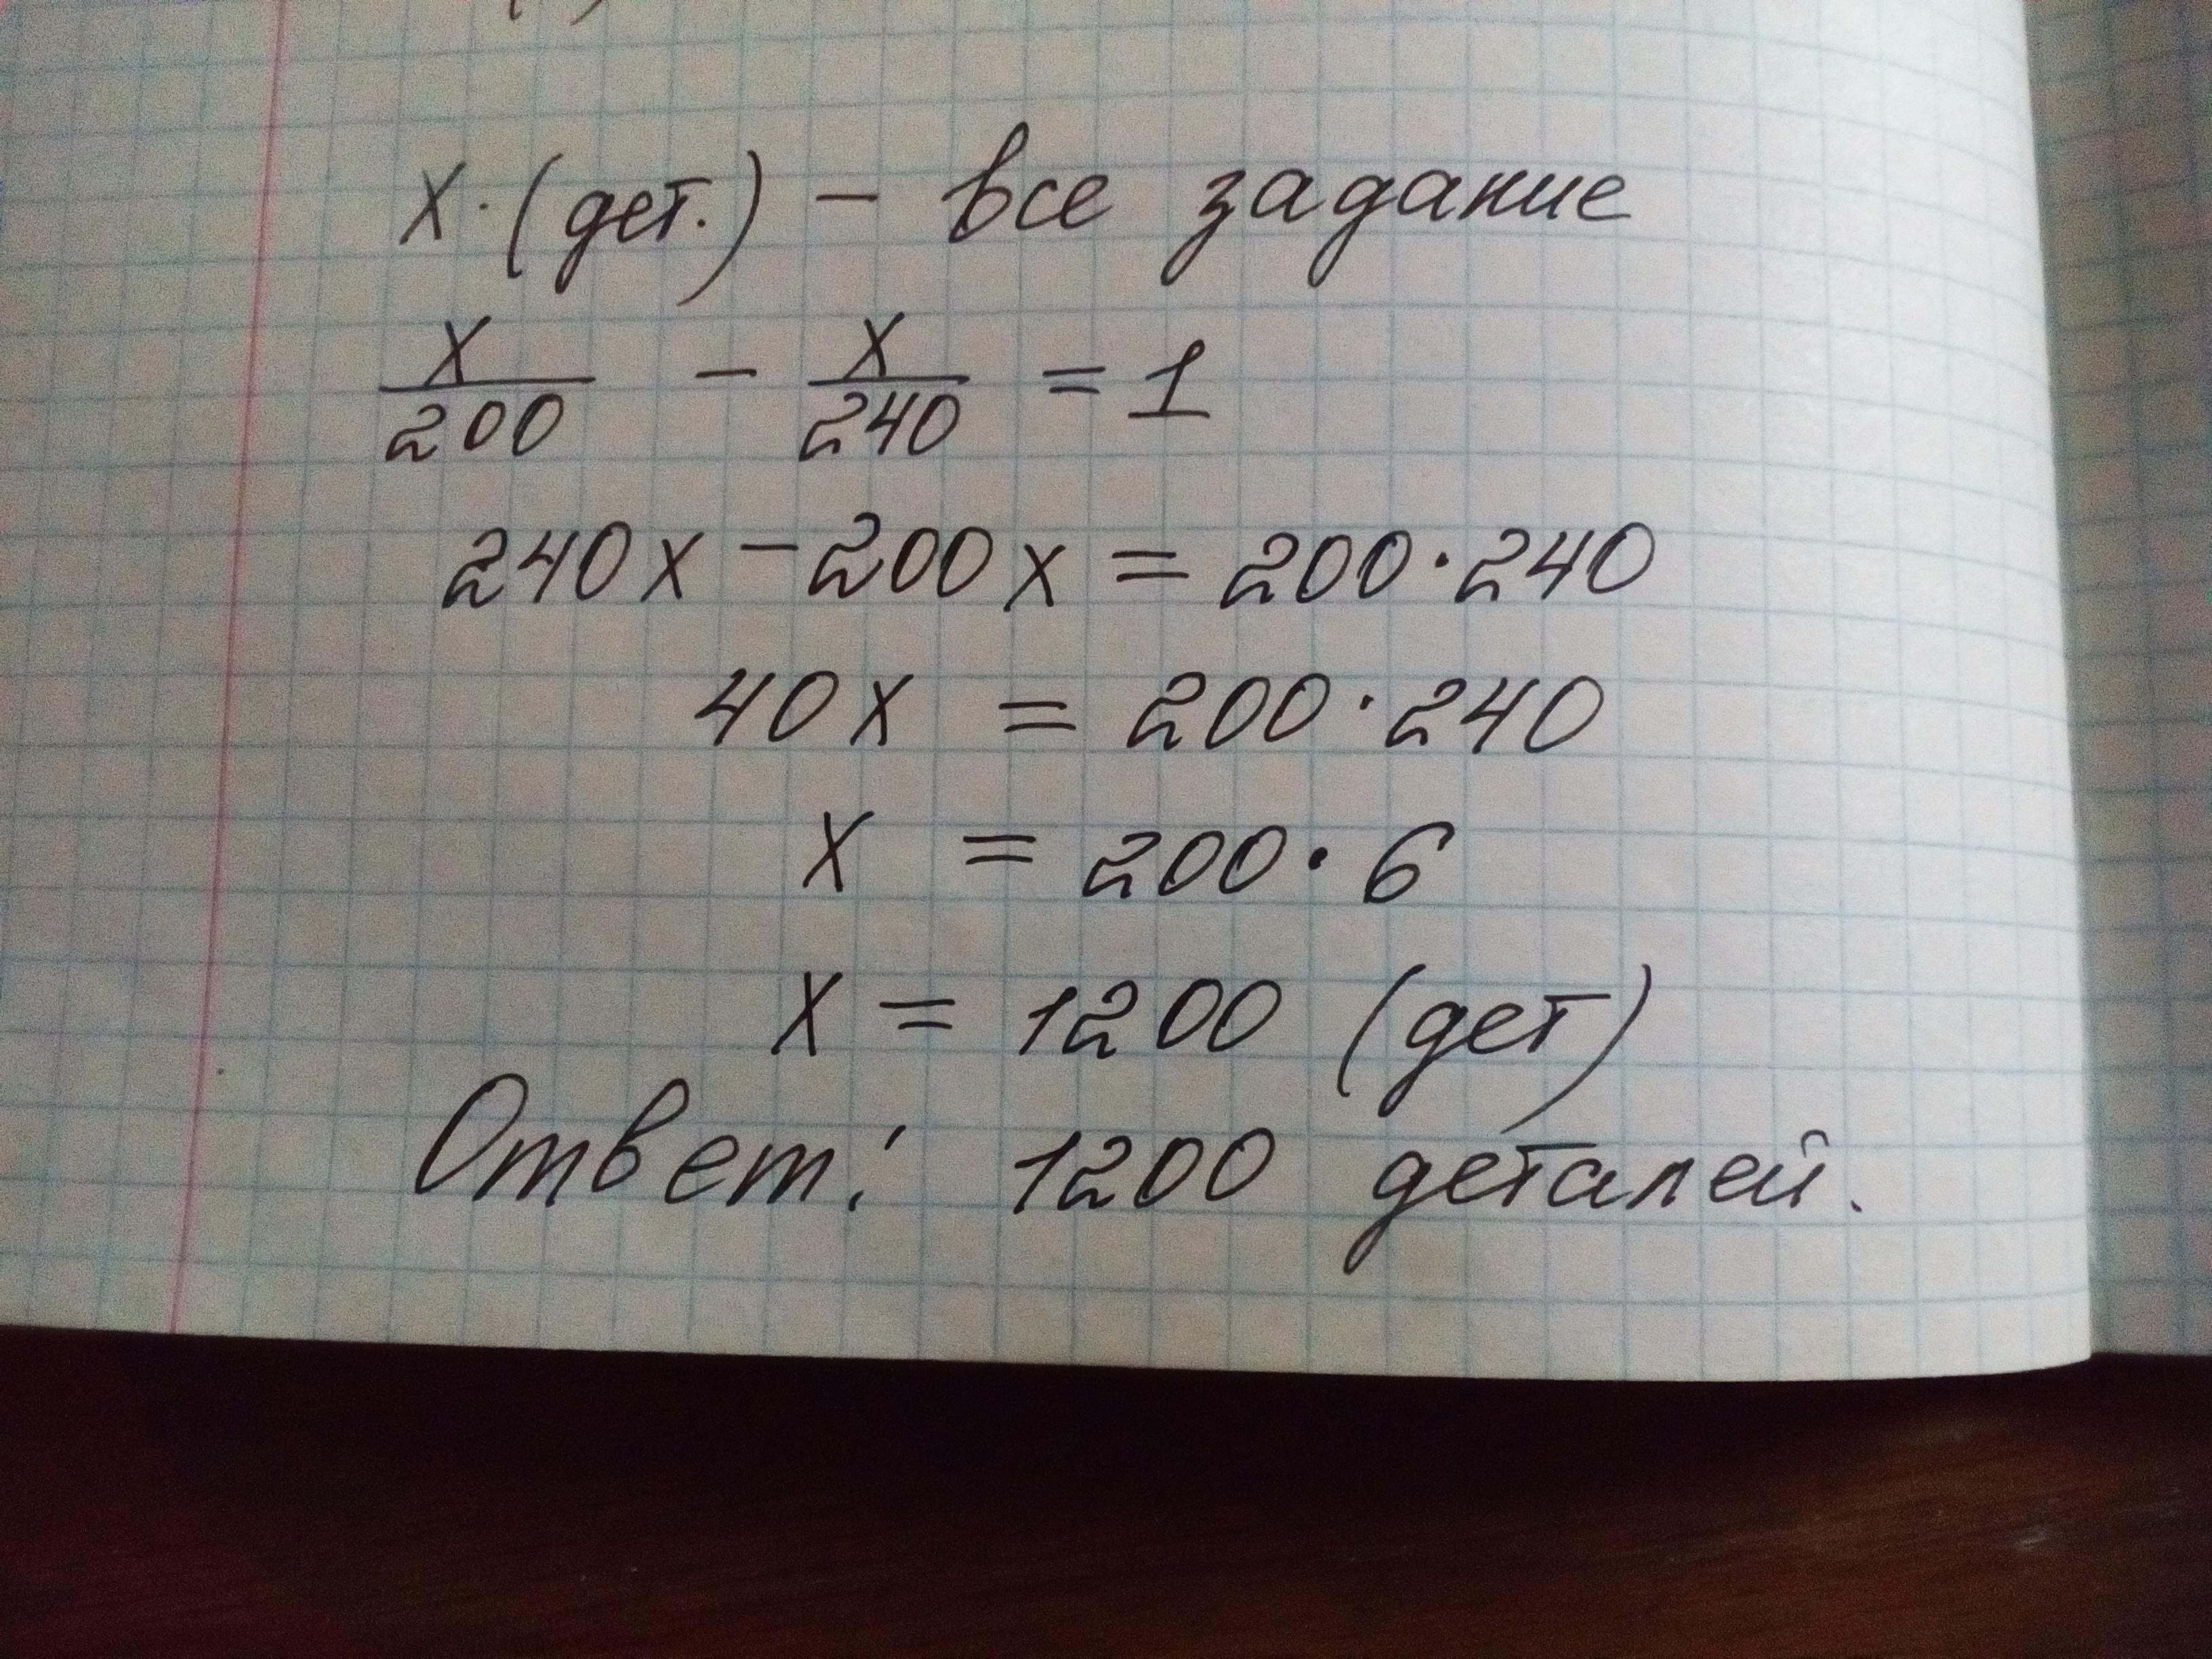 x·(дет.) – все задание
x/200 – x/240 = 1
240x – 200x = 200·240
40x = 200·240
x = 200·6
x = 1200 (дет)
Ответ: 1200 деталей.